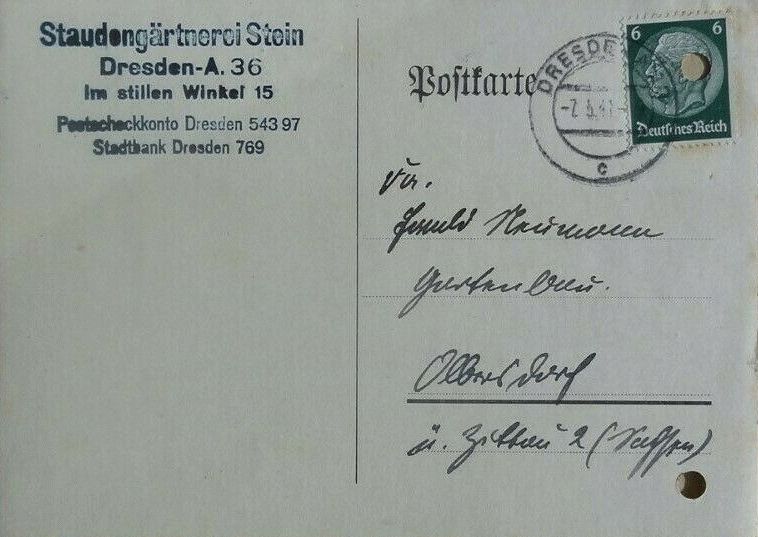 Staudengärtnerei Stein
Dresden-A. 36
Im stillen Winkel 15
Postscheckkonto Dresden 543 97
Stadtbank Dresden 769
Postkarte
DRESDEN
-7.5.41
c
6 6
Deutsches Reich
Fa.
Neumann
Gartenbau.
Olbersdorf
ü. Zittau 2 (Sachsen)